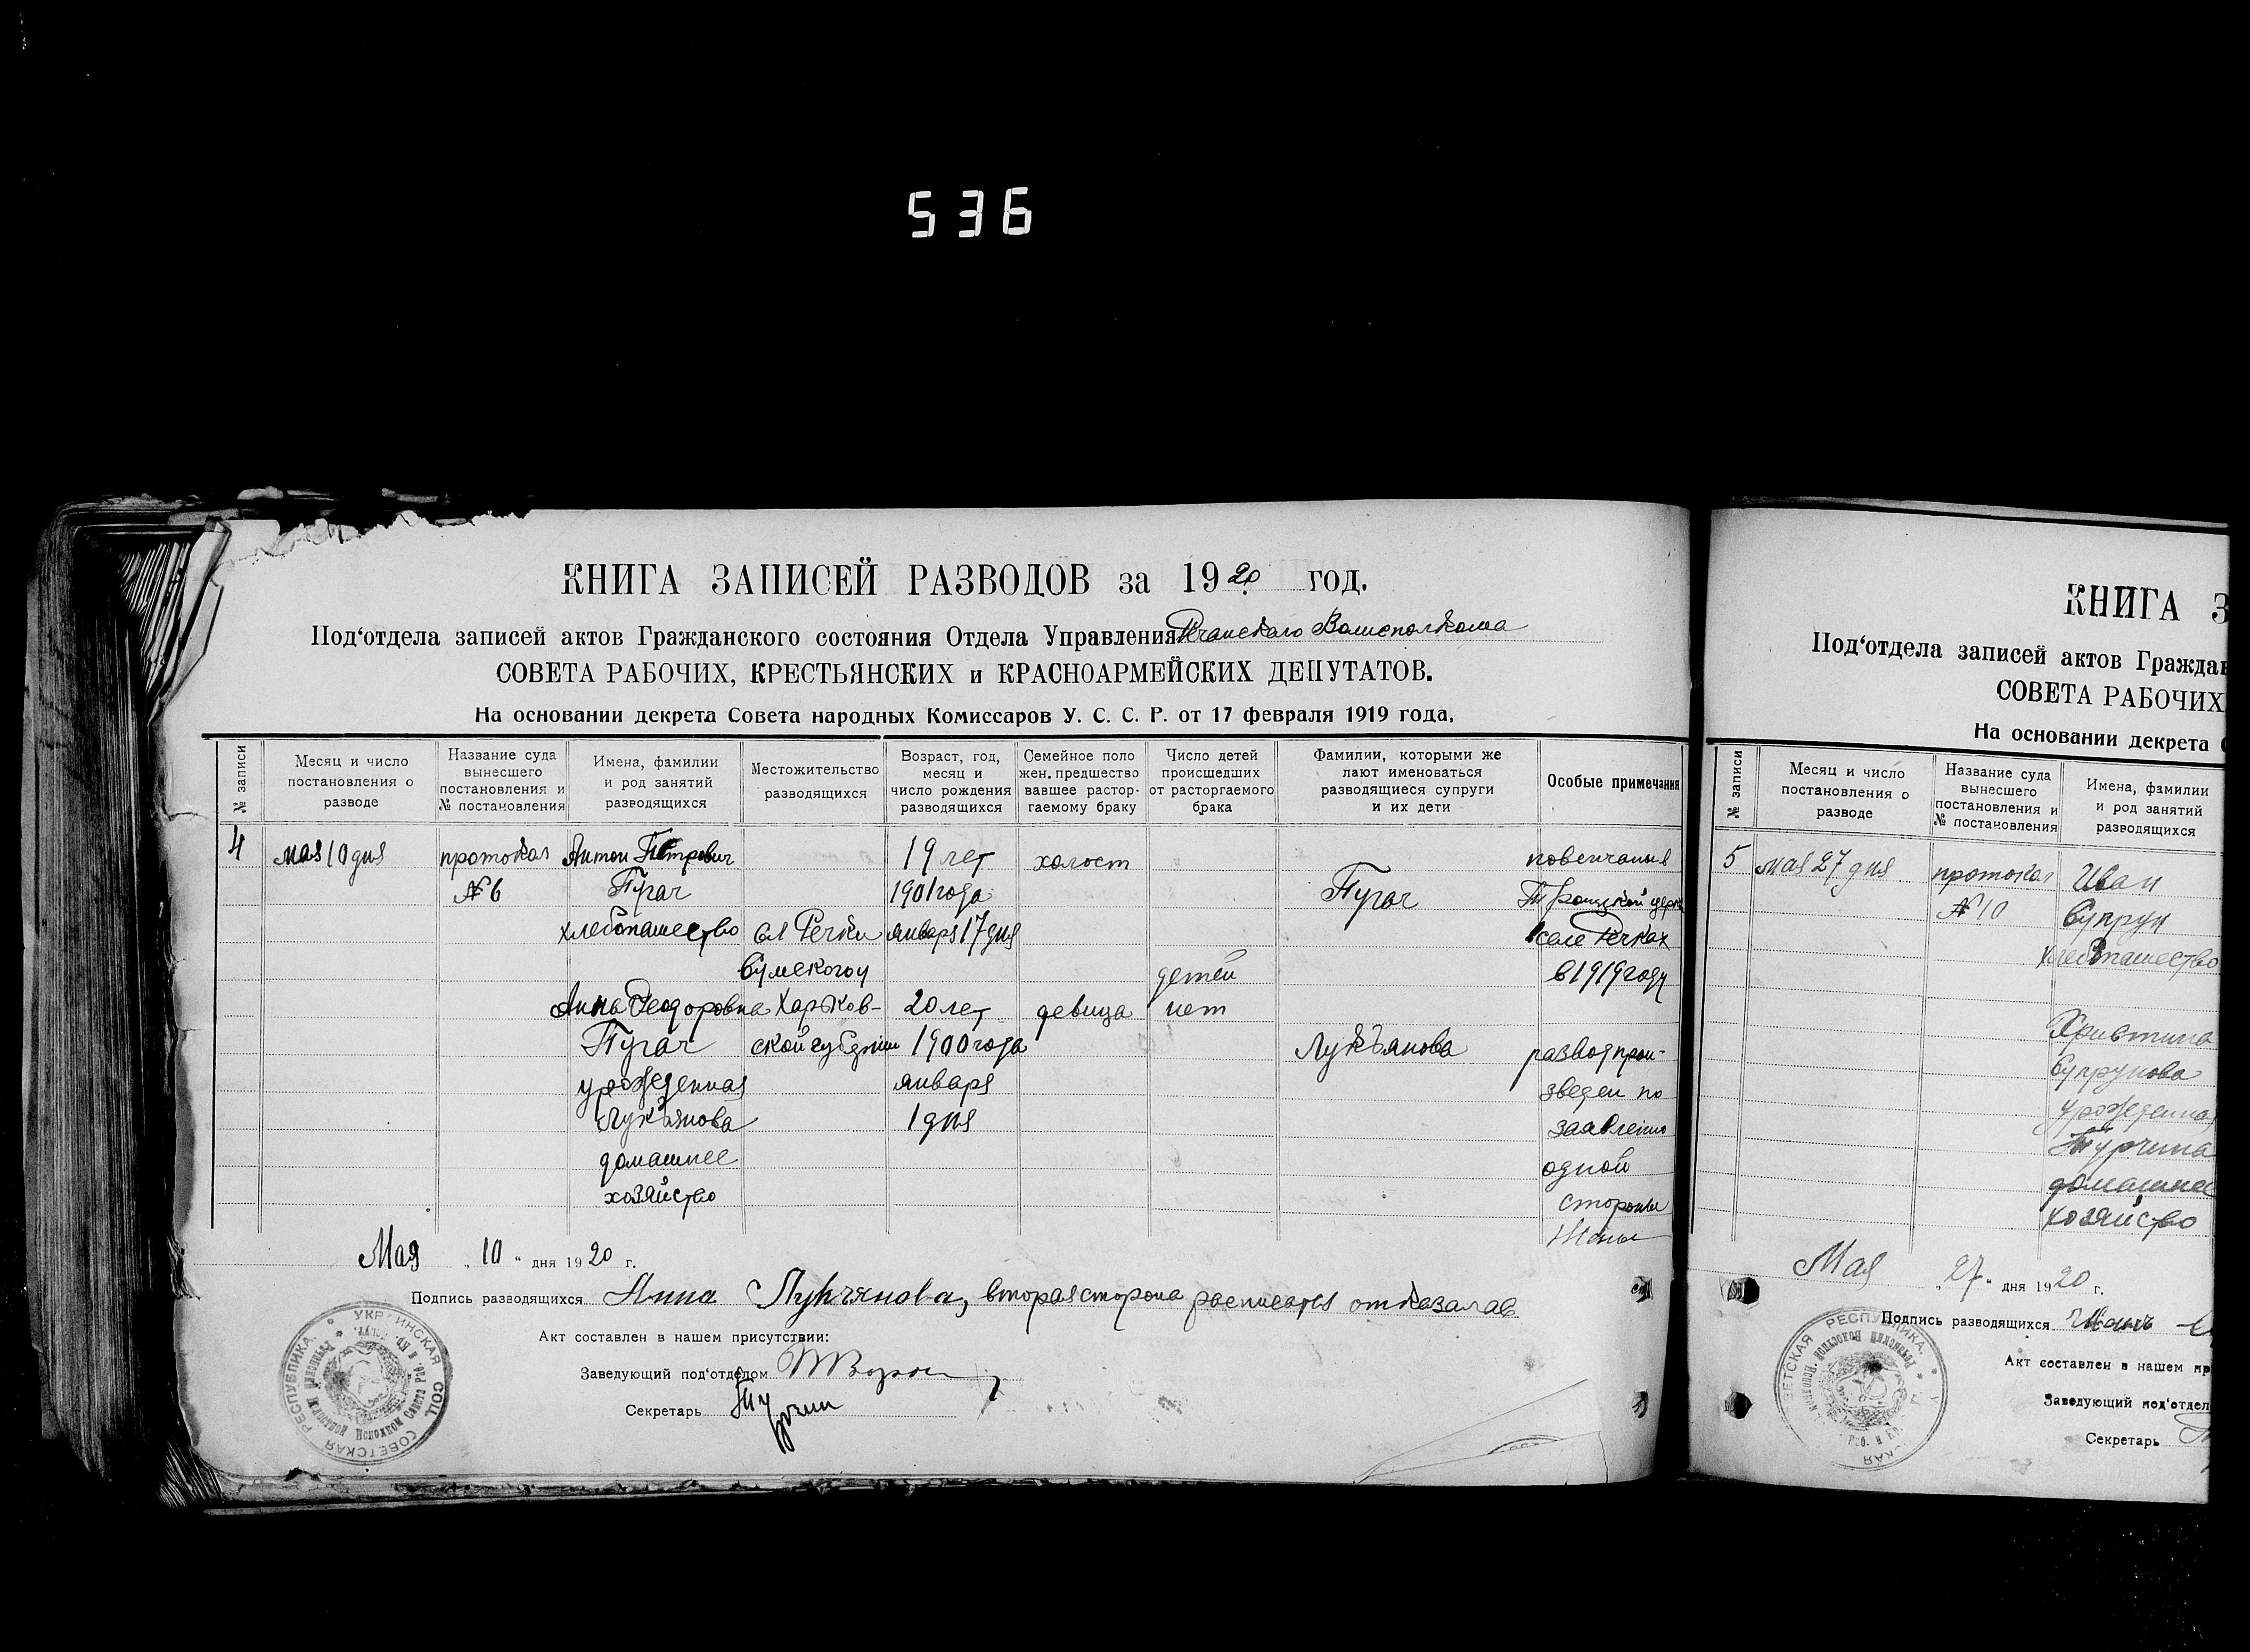 536
КНИГА ЗАПИСЕЙ РАЗВОДОВ за 1920 год.
Под‘отдела записей актов Гражданского состояния Отдела Управления Речанскаго Волисполкома
СОВЕТА РАБОЧИХ, КРЕСТЬЯНСКИХ и КРАСНОАРМЕЙСКИХ ДЕПУТАТОВ.
На основании декрета Совета народных Комиссаров У. С. С. Р. от 17 февраля 1919 года.
№ записи
Месяц и число
постановления о
разводе
Название суда
вынесшего
постановления и
№ постановления
Имена, фамилии
и род занятий
разводящихся
Местожительство
разводящихся
Возраст, год,
месяц и
число рождения
разводящихся
Семейное поло
жен. предшество
вавшее растор-
гаемому браку
Число детей
происшедших
от расторгаемого
брака
Фамилии, которыми же
лают именоваться
разводящиеся супруги
и их дети
Особые примечания
4
мая 10 дня
протокол
№ 6
Антон Петрович
Пугач
хлебопашество
Анна Феодоровна
Пугач
урожденная
Лукъянова
домашнее
хозяйство
сл Речки
Сумского у
Харьков-
ской губернии
19 лет
1901 года
января 17 дня
20 лет
1900 года
января
1 дня
холост
девица
детей
нет
Пугач
Лукъянова
повенчаны в
Троицкой церк
селе Речках
в 1919 году
развод прои-
зведен по
заявлению
одной
стороны
Жены
Мая „10“ дня 1920 г.
Подпись разводящихся Анна Лукъянова, вторая сторона расписатся отказалас
Акт составлен в нашем присутствии:
Заведующий под‘отделом
Секретарь
УКРАИНСКАЯ СОЦ. СОВЕТСКАЯ РЕСПУБЛИКА.
КНИГА З
Под‘отдела записей актов Граждан
СОВЕТА РАБОЧИХ
На основании декрета С
№ записи
Месяц и число
постановления о
разводе
Название суда
вынесшего
постановления и
№ постановления
Имена, фамилии
и род занятий
разводящихся
5
мая 27 дня
протокол
№ 10
Иван
Супрун
хлебопашество
Христина
Супрунова
урожденная
Турчина
домашнее
хозяйство
Мая „27“ дня 1920 г.
Подпись разводящихся
Акт составлен в нашем пр
Заведующий под‘отдел
Секретарь